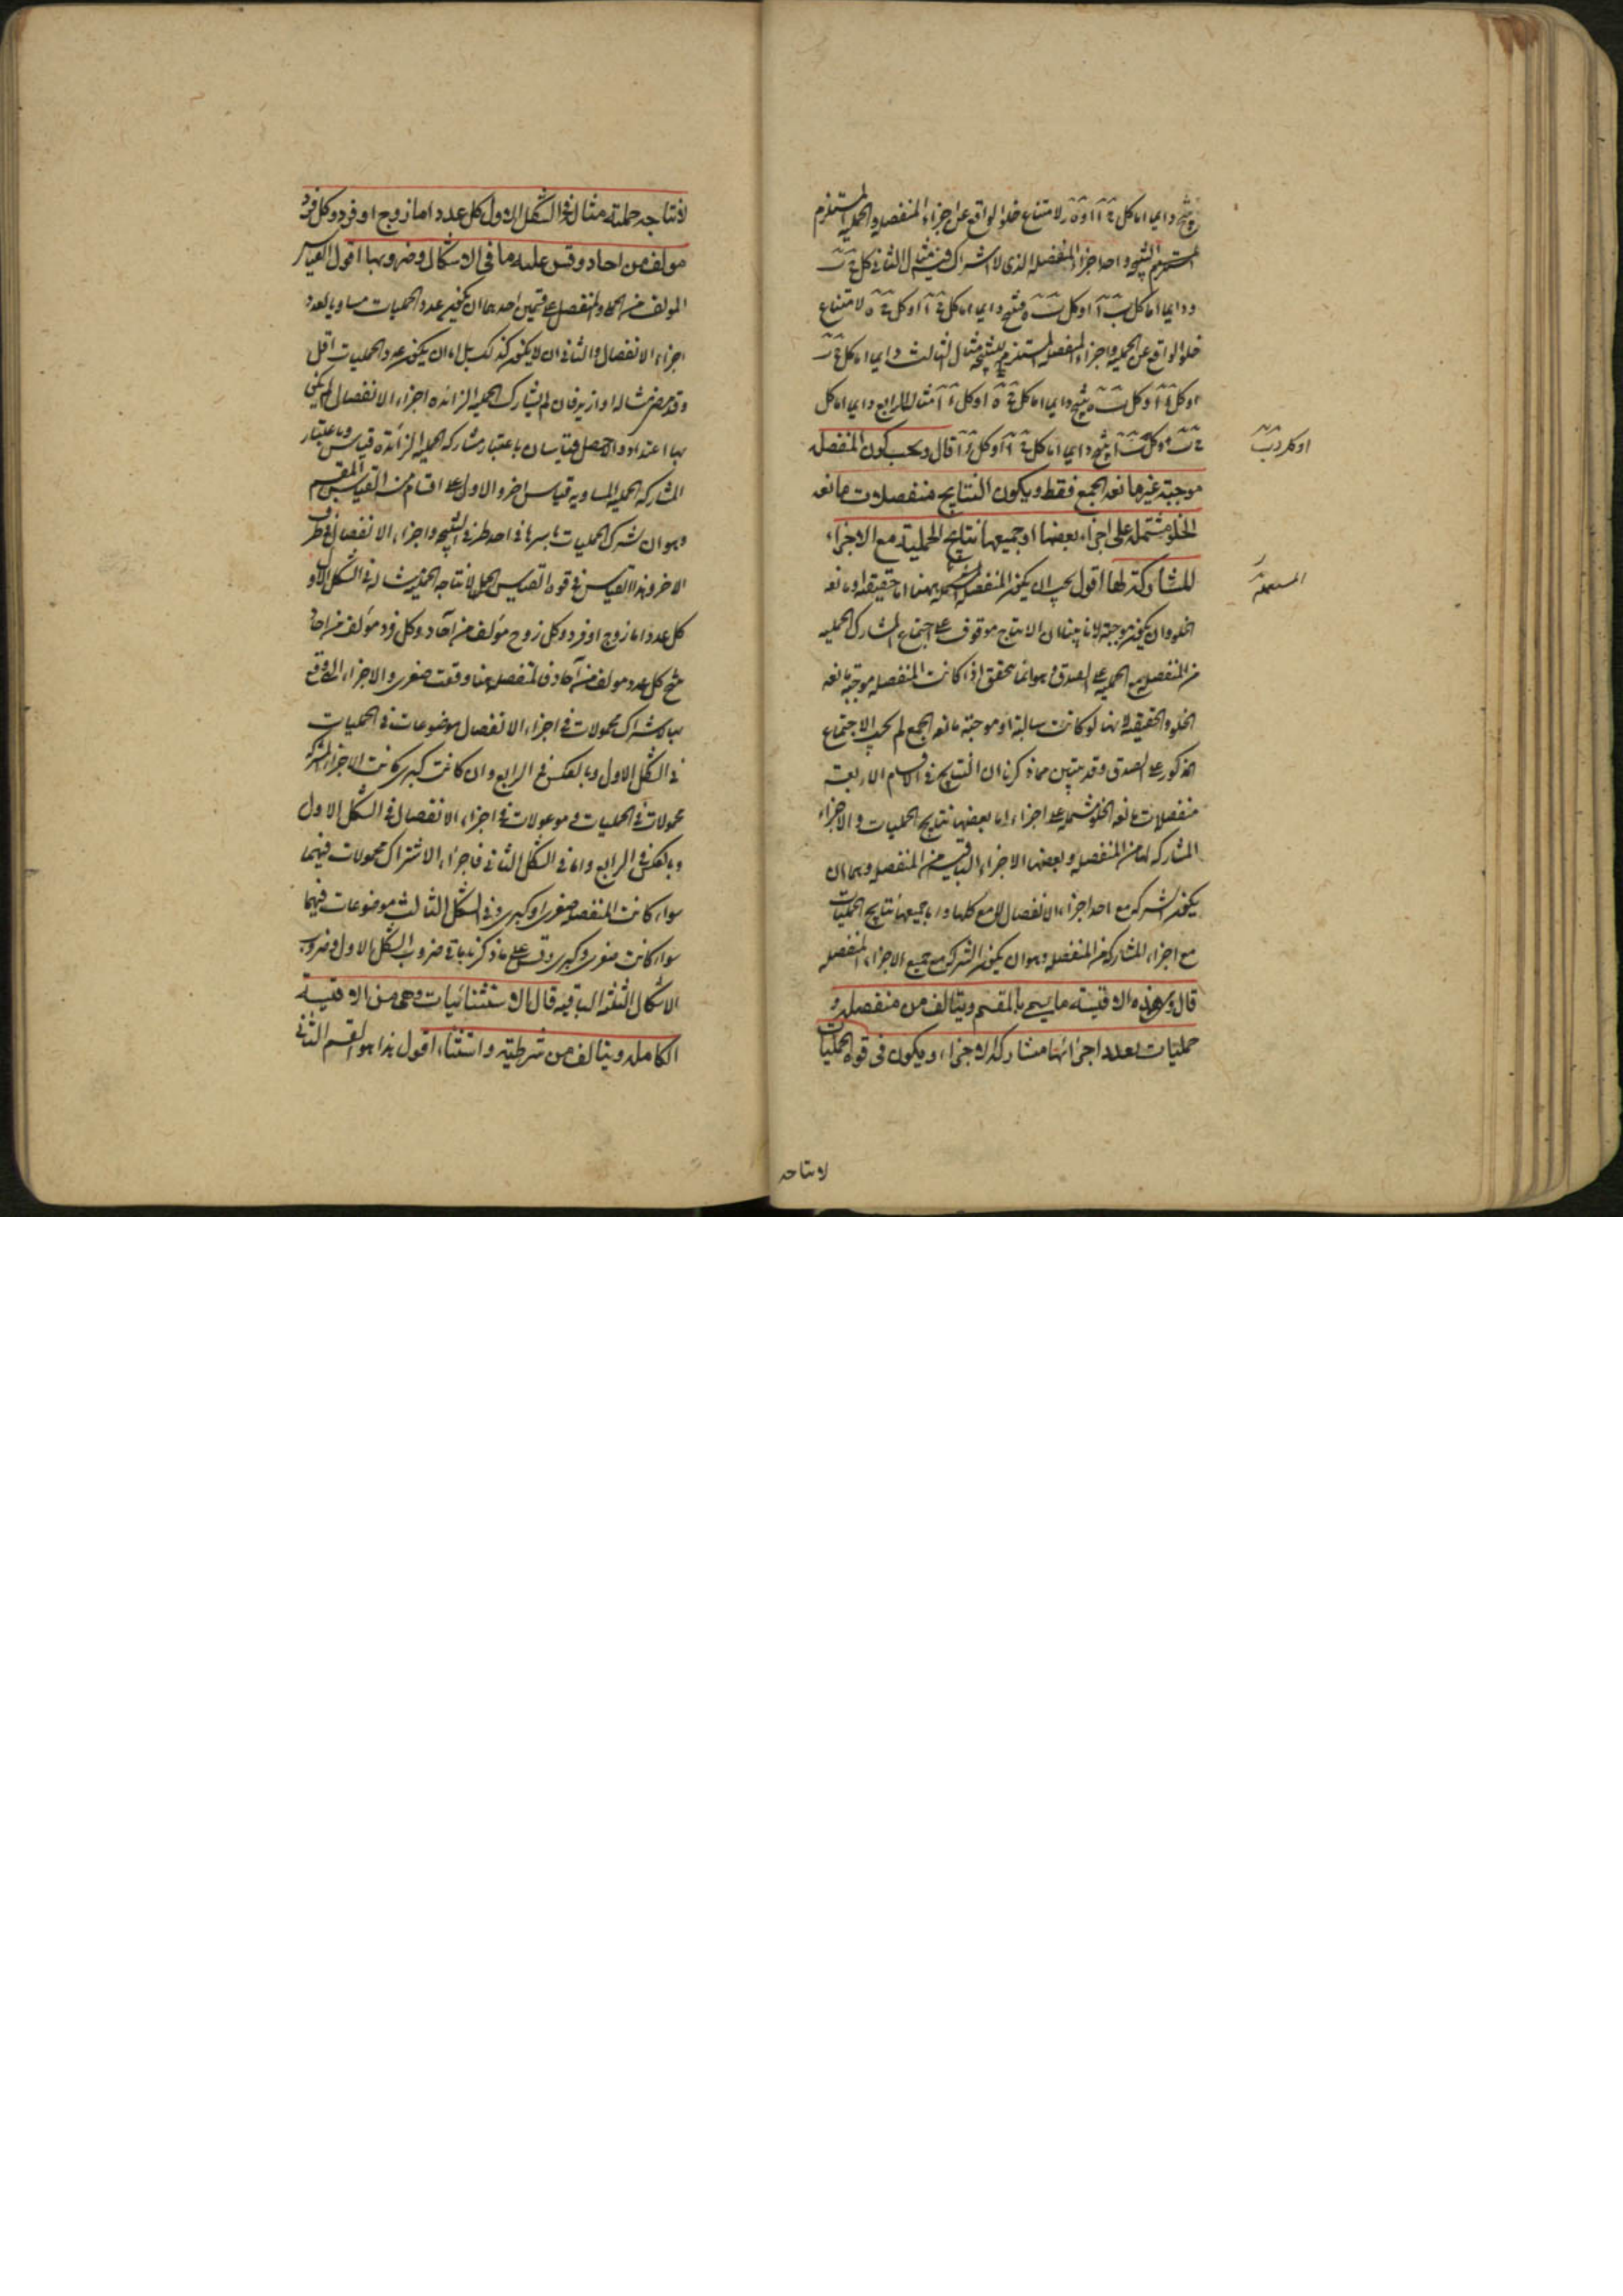 ينتج دايما اما كل ج ا او ه ر لامتناع خلو الواقع عن اجزاء المنفصلة والحملية المستلزم
للنتيجة واحد اجزاء المنفصلة الذى لا اشتراك فيه مثال الثانى كل ج ب
ودايما اما كل ب ا او كل ب ه ينتج دايما اما كل ج ا او كل ج ه لامتناع
خلو الواقع عن الحملية واجزاء المنفصلة المستلزم للنتيجة مثال الثالث دايما اما كل ج ب
او كل ا او كل ب ه ينتج دايما اما كل ج ه او كل ا مثال الرابع دايما اما كل
ج ب او كل ب ا ينتج دايما اما كل ج ا او كل ا قال ويجب كون المنفصلة
موجبة غير مانعة الجمع فقط ويكون النتايج منفصلات مانعة
الخلو مشتملة على اجزاء بعضها او جميعها نتايج الحملية مع الاجزاء
المشاركة لها اقول يجب ان يكون المنفصلة المستعملة ههنا اما حقيقة او مانعة
الخلو وان يكون موجبة لانا بينا ان الانتاج موقوف على اجتماع المشارك الحملية
من المنفصلة مع الحملية على الصدق وهو انما يتحقق اذا كانت المنفصلة موجبة مانعة
الخلو والحقيقة لانها لو كانت سالبة او موجبة مانعة الجمع لم يجب الاجتماع
المذكور على الصدق وقد تبين مما ذكرنا ان النتايج فى الاقسام الاربعة
منفصلات مانعة الخلو مشتملة على اجزاء اما بعضها نتايج الحمليات والاجزاء
المشاركة لها من المنفصلة وبعضها الاجزاء الباقية من المنفصلة وهى ان
يكون الشركة مع احد اجزاء الانفصال لا مع كلها واما جميعها نتايج الحمليات
مع اجزاء المشاركة من المنفصلة وهو ان يكون الشركة مع جميع الاجزاء المنفصلة
قال ومن هذه الاقيسة ما يسمى بالمقسم ويتالف من منفصلة و
حمليات بعدد اجزائها مشاركة الاجزاء ويكون فى قوة الحمليات
لانتاجه
لانتاجه حملية مثاله فى الشكل الاول كل عدد اما زوج او فرد وكل فرد
مولف من احاد وقس عليه ما فى الاشكال وضروبها اقول القياس
المولف من الحملى والمنفصل على قسمين احدهما ان يكون عدد الحمليات مساويا لعدد
اجزاء الانفصال والثانى ان لا يكون كذلك بل اما ان يكون عدد الحمليات اقل
وقد مر مثاله او ازيد فان لم يشارك الحملية الزائدة اجزاء الانفصال لم يكن
بها اعتداد والا حصل قياسان باعتبار مشاركة الحملية الزائدة قياس وباعتبار
المشاركة الحملية المساوية قياس اخر والاول على اقسام من القياس المقسم
وهو ان يشترك الحمليات باسرها فى احد طرفى النتيجة واجزاء الانفصال فى طرف
الاخر وهذا القياس فى قوة القياس الحملى لانتاجه الحملية مثاله فى الشكل الاول
كل عدد اما زوج او فرد وكل زوج مؤلف من آحاد وكل فرد مؤلف من احاد
ينتج كل عدد مولف من آحاد فالمنفصلة هنا وقعت صغرى والاجزاء التى وقع
بها الاشتراك محمولات فى اجزاء الانفصال موضوعات فى الحمليات
فى الشكل الاول وبالعكس فى الرابع وان كانت كبرى كانت الاجزاء المشتركة
محمولات فى الحمليات وموضوعات فى اجزاء الانفصال فى الشكل الاول
وبالعكس فى الرابع واما فى الشكل الثانى فاجزاء الاشتراك محمولات فيهما
سواء كانت المنفصلة صغرى او كبرى وفى الشكل الثالث موضوعات فيهما
سواء كانت صغرى او كبرى وقس على ما ذكرنا باقى ضروب الشكل الاول وضروب
الاشكال الثلثة الباقية قال الاستثنائيات وهى من الاقيسة
الكاملة ويتالف من شرطية واستثناء اقول هذا هو القسم الثانى